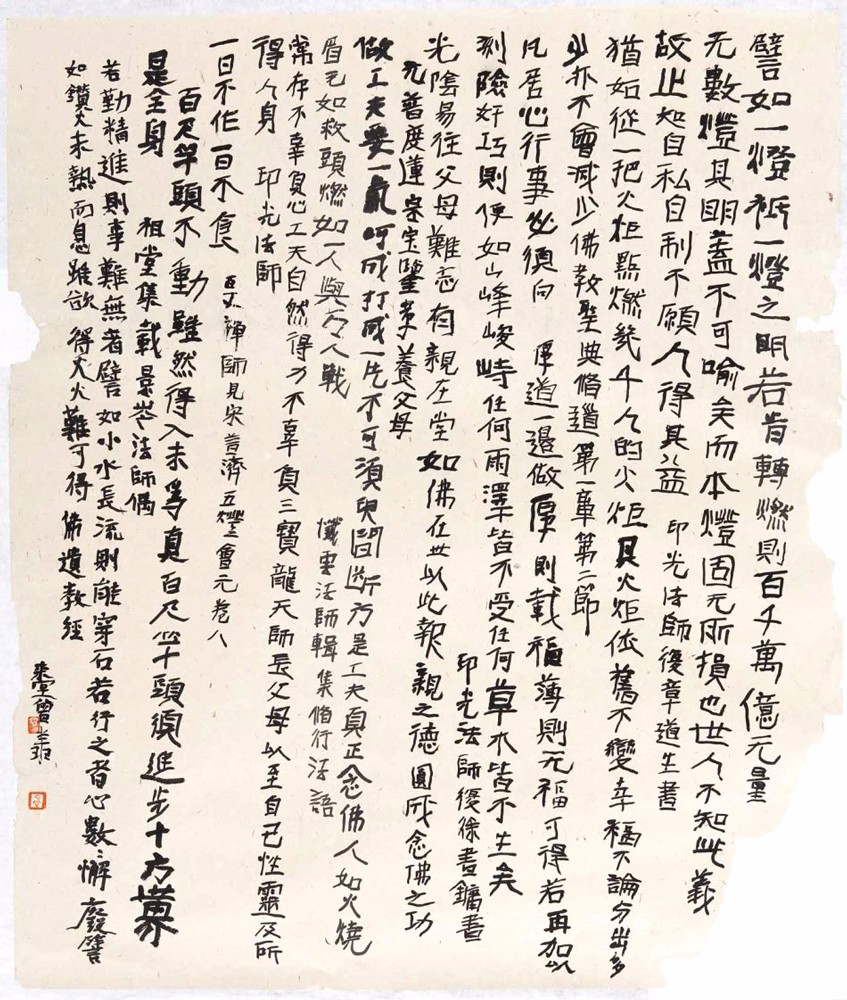 譬如一燈秖一燈之明若肯轉燃則百千萬億无量
无數燈其明蓋不可喻矣而本燈固无所損也世人不知此義
故止知自私自利不願人得其益 印光法師復章道生書
猶如從一把火炬點燃幾千人的火炬其火炬依舊不變幸福不論分出多
少亦不會減少佛教聖典脩道第一章第二節
凡居心行事必須向 厚道一邊做厚則載福薄則无福可得若再加以
刻險奸巧則便如山峰峻峙任何雨澤皆不受任何草木皆不生矣
印光法師復徐書鏞書
光陰易往父母難忘有親在堂如佛在世以此報親之德圓成念佛之功
元普度蓮宗宝鑒孝養父母
做工夫要一氣呵成打成一片不可須臾間斷方是工夫真正念佛人如火燒
眉毛如救頭燃如一人與万人戰
懺雲法師輯集脩行法語
常存不辜負心工夫自然得力不辜負三寶龍天師長父母以至自己性靈及所
得人身 印光法師
一日不作一日不食 百丈禪師見宋普濟五燈會元卷八
百尺竿頭不動 雖然得入未為真百尺竿頭須進步十方世界
是全身 祖堂集載景岑法師偈
若勤精進則事難無者譬如小水長流則能穿石若行之者心數數懈廢譬
如鑽火未熱而息雖欲得火火難可得 佛遺教經